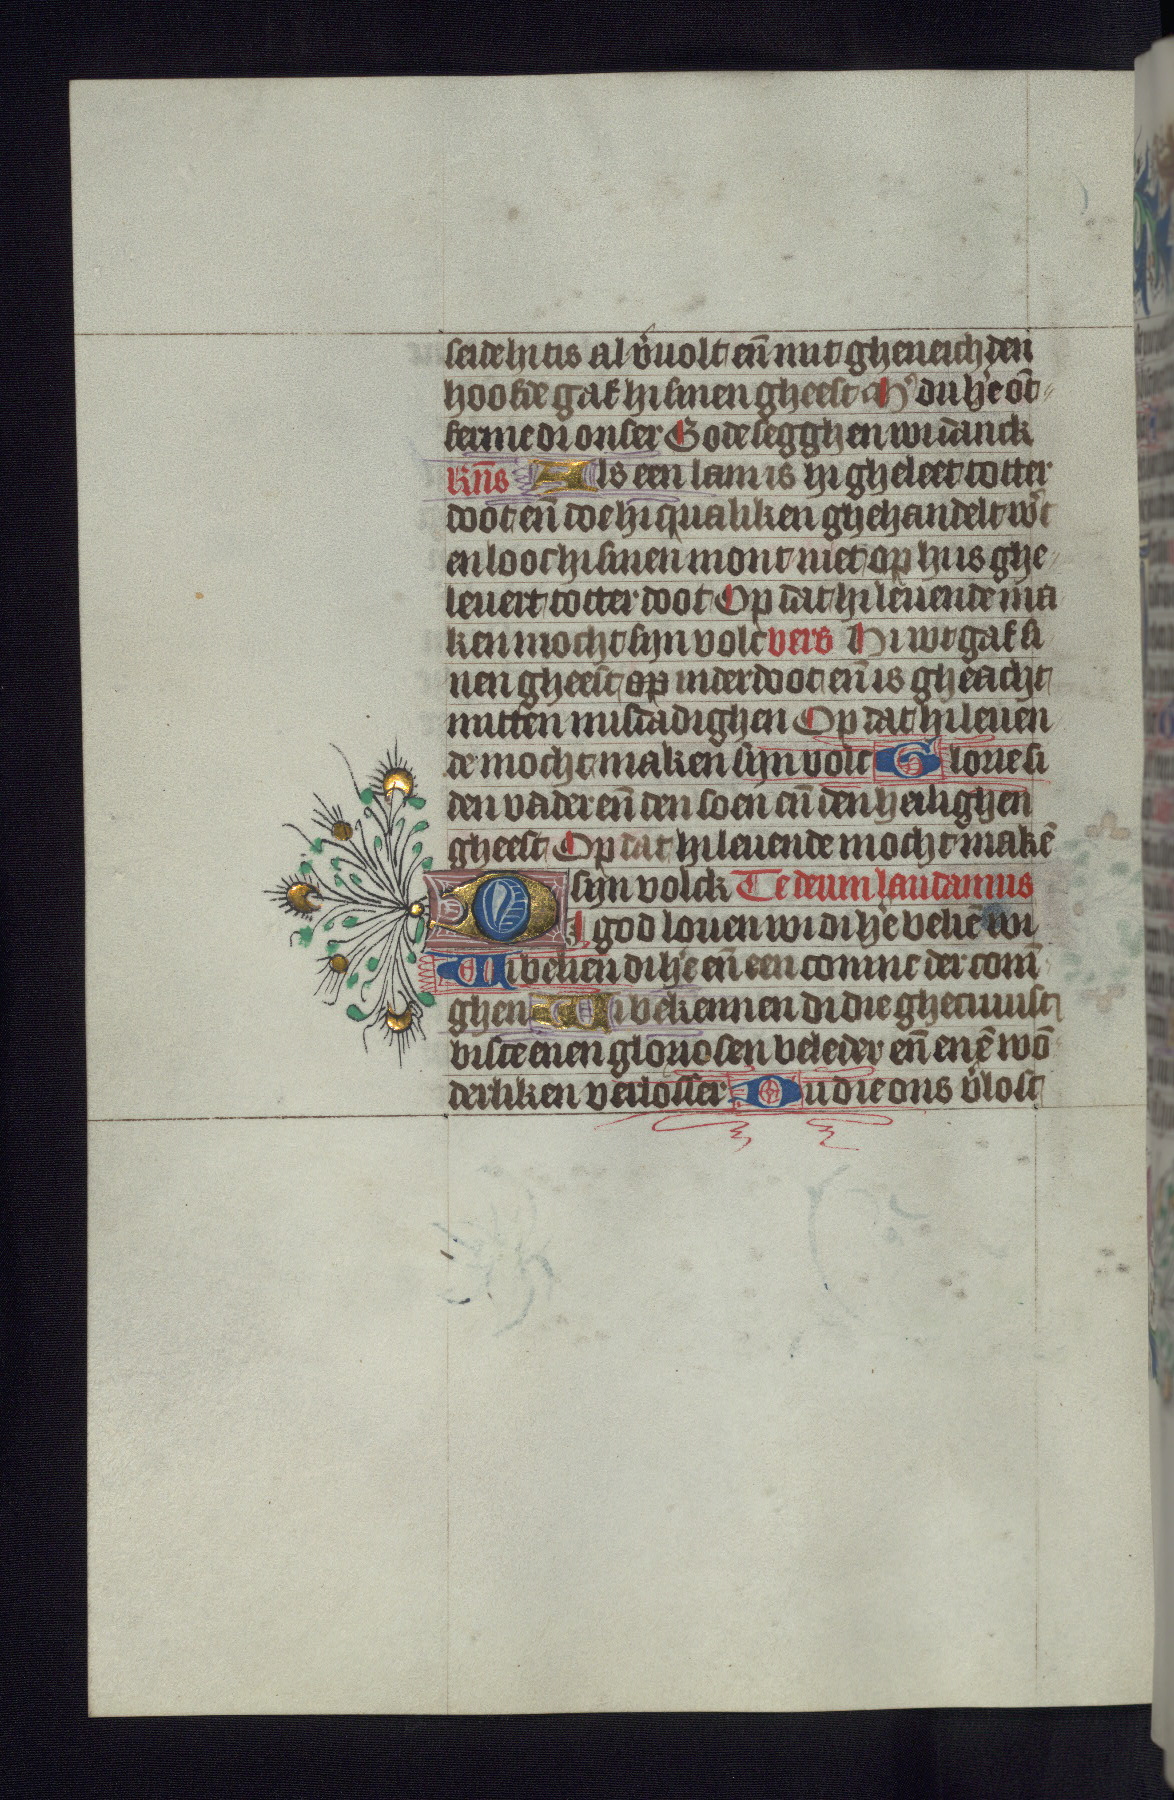 seide hi tis al v̄uolt en̄ mit gheneichden
hoofde gaf hi sinen gheest Mer du he ōt
ferme di onser Gode segghen wi danck
Rn̄s Als een lam is hi gheleet totter
doot en̄ doe hi qualiken ghehandelt wert
en looc hi sinen mont niet op hi is ghe
leuert totter doot Op dat hi leuende ma
ken mocht sijn volc vers Hi wtgaf si
nen gheest op in der doot en̄ is gheacht
mitten misdadighen Op dat hi leuen
de mocht maken sijn volc Glorie si
den vader en̄ den soen en̄ den heilighen
gheest Op dat hi leuende mocht makē
sijn volck Te deum laudamus
DI god louen wi di he beliē wi
Wi belien di he en̄ een coninc der conī
ghen Wi bekennen di die ghecruust
biste enen gloriosen beleder en̄ enē wō
derliken verlosser Du die ons v̄lost